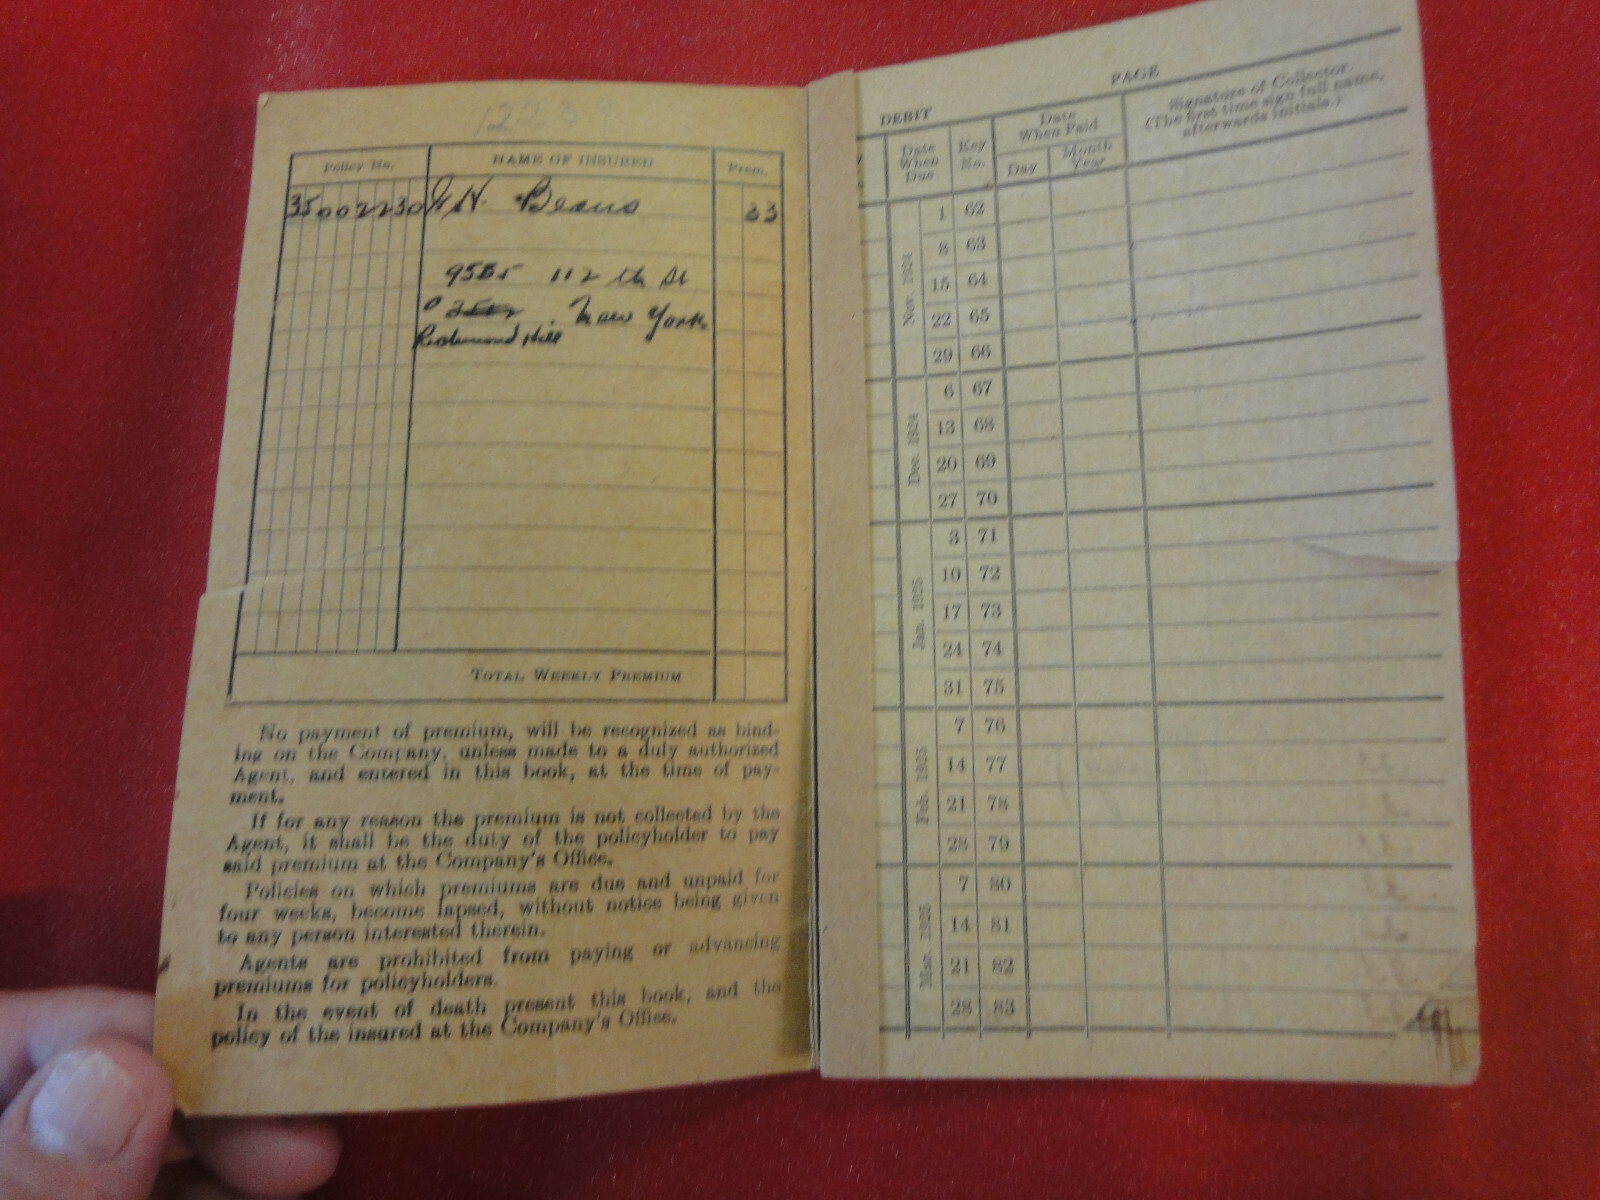 1223
Policy No. NAME OF INSURED Prem.
35002230 H. Beans 33
112 th St
New York
Richmond Hill
TOTAL WEEKLY PREMIUM
No payment of premium, will be recognized as bind-
ing on the Company, unless made to a duly authorized
Agent, and entered in this book, at the time of pay-
ment.
If for any reason the premium is not collected by the
Agent, it shall be the duty of the policyholder to pay
said premium at the Company's Office.
Policies on which premiums are due and unpaid for
four weeks, become lapsed, without notice being given
to any person interested therein.
Agents are prohibited from paying or advancing
premiums for policyholders.
In the event of death present this book, and the
policy of the insured at the Company's Office.
DEBIT PAGE
Date When Due
Key No.
Date When Paid
Day
Month Year
Signature of Collector.
(The first time sign full name,
afterwards initials.)
Nov. 1924
1 62
8 63
15 64
22 65
29 66
Dec. 1924
6 67
13 68
20 69
27 70
Jan. 1925
3 71
10 72
17 73
24 74
31 75
Feb. 1925
7 76
14 77
21 78
28 79
Mar. 1925
7 80
14 81
21 82
28 83